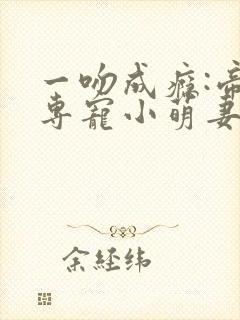 一吻成瘾:帝
专宠小萌妻
余经纬